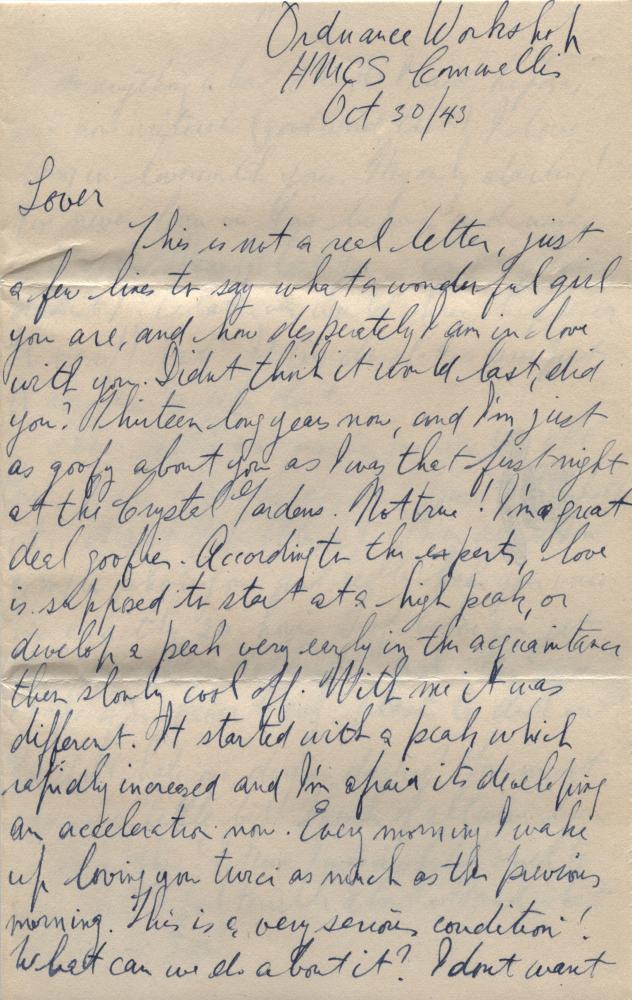 Ordnance Workshop
HMCS Cornwallis
Oct 30/43
Lover
This is not a real letter, just
a few lines to say what a wonderful girl
you are, and how desperately I am in love
with you. Didnt think it would last, did
you? Thirteen long years now, and I'm just
as goofy about you as I was that first night
at the Crystal Gardens. Not true! I'm a great
deal goofier. According to the experts, love
is supposed to start at a high peak, or
develop a peak very early in the acquaintance
then slowly cool off. With me it was
different. It started with a peak which
rapidly increased and I'm afraid its developing
an acceleration now. Every morning I wake
up loving you twice as much as the previous
morning. This is a very serious condition!
What can we do about it? I dont want